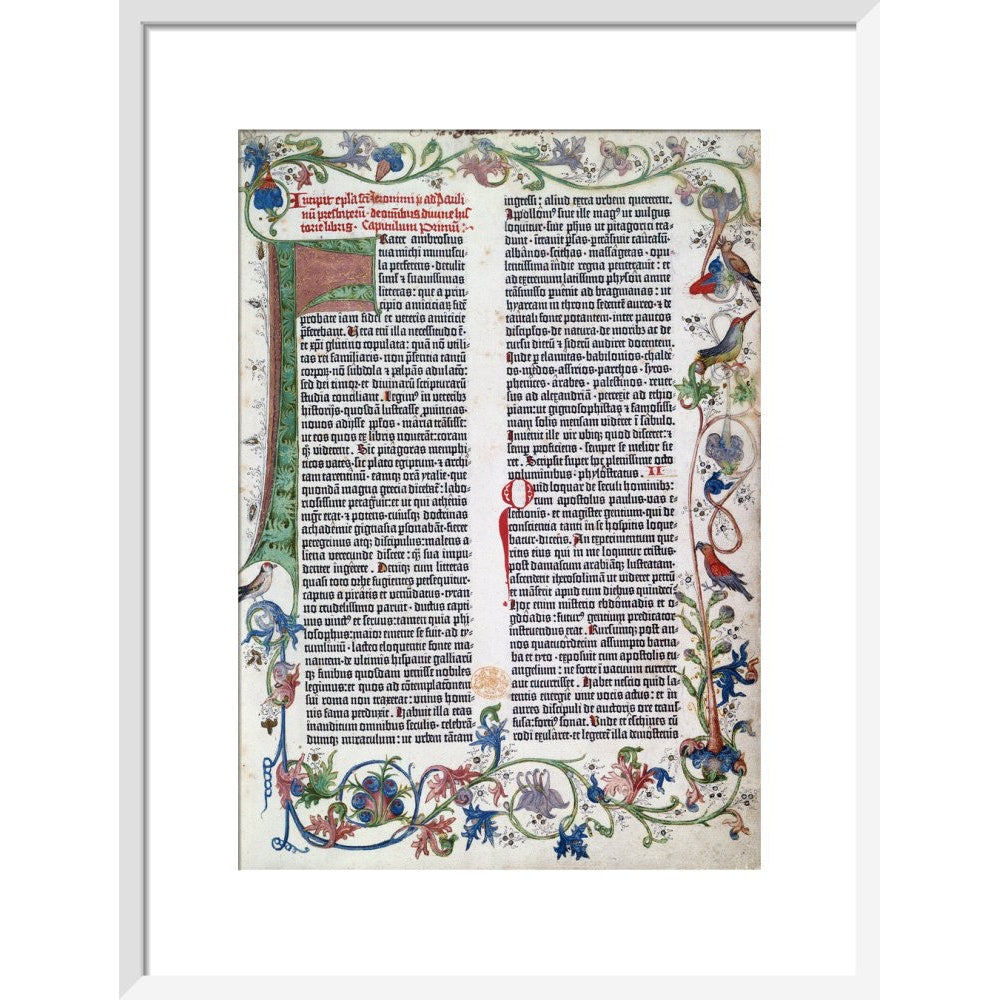 Incipit epl̄a sc̄ti Jeronimi p̄ ad Pauli
nū presbiterū · de om̄ibus divine his
torie libris · Capitulum Primū :·
Frater ambrosius
tua michi munuscu
la perferens · detulit
sim̄l ꝛ suavissimas
litteras : que a prin
cipio amiciciar̄ · fidē
probate iam fidei et veteris amicicie
p̄ferebant. Vera eni illa necessitudo ē ·
et xp̄i glutino copulata : quā nō utili
tas rei familiaris · non p̄sentia tantū
corpor̄ · nō subdola ꝛ palpās adulatō :
sed dei timor · et divinar̄ū scripturarū
studia conciliant. Legim⁹ in veterib̄
historijs · quosdā lustrasse p̄vincias ·
novos adijsse pp̄los · maria trāsisse :
ut eos quos ex libris noverāt : coram
q̄ȝ viderent. Sic pitagoras memphi
ticos vates · sic plato egiptum · ꝛ archi
tam tarentinū · eamqȝ orā ytalie · que
quondā magna grecia dicebat̄ : labo
riosissime peragravit : et ut qui athenis
mgr̄ erat · ꝛ potens · cuiusqȝ doctrinas
achademie gignasia p̄sonabāt · fieret
peregrinus atqȝ discipulus : malens a
liena verecunde discere : q̄ȝ sua impu
denter ingerere. Deniqȝ cum litteras
quasi toto orbe fugientes persequitur ·
captus a piratis et venūdatus · tyran
no crudelissimo paruit · ductus capti
vus vinct⁹ et servus : tamen quia phi
losophus : maior emente se fuit · ad ty
tumlivium · lacteo eloquentie fonte ma
nantem · de ultimis hispanie galliarū
qȝ finibus quosdam venisse nobiles
legimus : et quos ad cōtemplatōnem
sui roma non traxerat : unius homi
nis fama perduxit. Habuit illa etas
inauditum omnibus seculis · celebrā
dumqȝ miraculum : ut urbem tātam
ingressi : aliud extra urbem quererent.
Appolloni⁹ sive ille mag⁹ ut vulgus
loquitur · sive ph̄us ut pitagorici tra
dunt · ītravit p̄sas · ptrāsivit caucasū ·
albanos · scithas · massagetas · opu
lentissima indie regna penetravit : et
ad extremum latissimo physon amne
trāsmisso p̄venit ad bragmanas : ut
hyarcam in throno sedente aureo · ꝛ de
tantali fonte potantem · inter paucos
discip̄los · de natura · de morib⁹ ac de
cursu dierū ꝛ siderū audiret docentem.
Inde p̄ elamitas · babilonios · chalde
os · medos · assirios · parthos · syros ·
phenices · arabes · palestinos · rever
sus ad alexandriā · perrexit ad ethio
piam : ut gignosophistas ꝛ famosissi
mam solis mensam videret ī sabulo.
Invenit ille vir ubiqȝ quod disceret : ꝛ
semp̄ proficiens · semper se melior fie
ret. Scripsit super hoc plenissime octo
voluminibus · phylostratus. II
Quid loquar de seculi hominib⁹ :
cum apostolus paulus · vas e
lectionis · et magister gentium · qui de
conscientia tanti in se hospitis loque
batur · dicens. An experimentum que
ritis eius qui in me loquitur cristus.
post damascum arabiāqȝ lustratam ·
ascenderit iherosolimā ut videret petrū
et māserit apud eum diebus quindeci.
Hoc enim misterio ebdōmadis et o
gdoadis : futur⁹ gentium predicator
instruendus erat. Rursumqȝ post an
nos quatuordecim assumpto barna
ba et tyto · exposuit cum apostolis eu
angelium : ne forte ī vacuum curreret
aut cucurrisset. Habet nescio quid la
tentis energie vive vocis actus : et in
aures discipuli de auctoris ore trans
fusa : forti⁹ sonat. Unde et eschines cū
rodi exularet · et legeret̄ illa demostenis